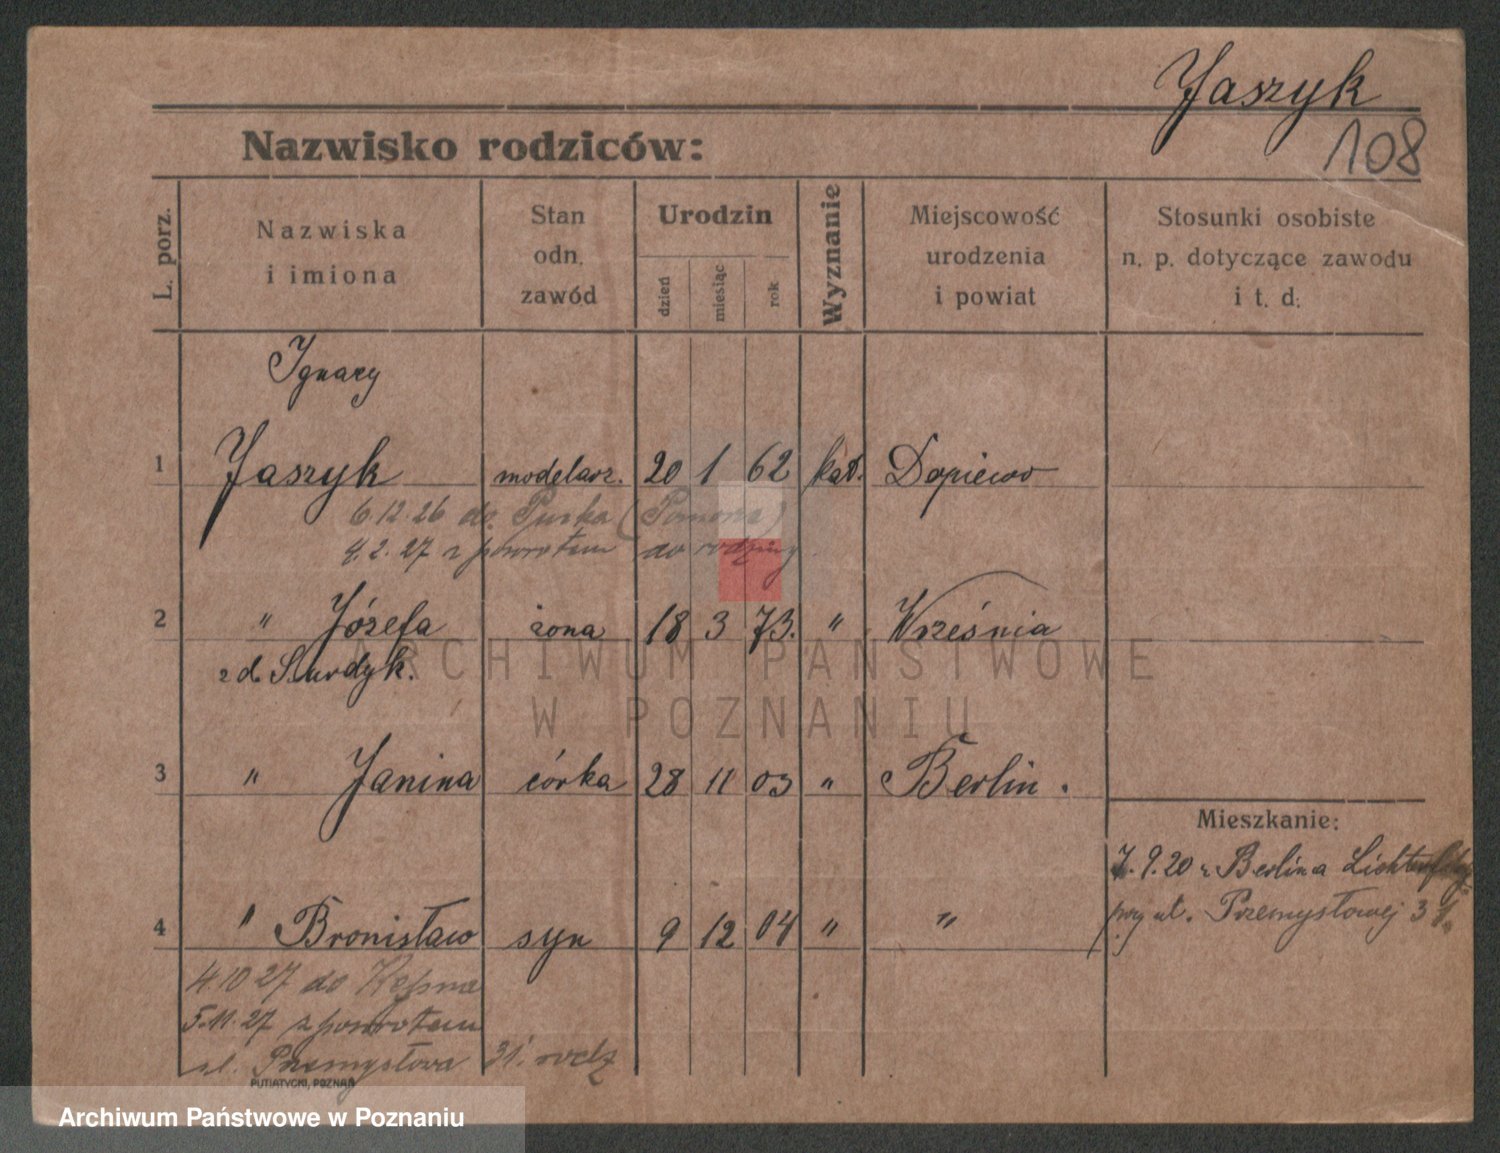 Jaszyk
108
Nazwisko rodziców:
L. porz.
Nazwiska
i imiona
Stan
odn.
zawód
Urodzin
dzień
miesiąc
rok
Wyznanie
Miejscowość
urodzenia
i powiat
Stosunki osobiste
n. p. dotyczące zawodu
i t. d.
Ignacy
1 Jaszyk modelarz. 20 1 62 kat. Dopiewo
6.12.26 do Pucka (Pomorze)
4.2.27 z powrotem do rodziny
2 " Józefa żona 18 3 73. " Września
z d. Skurdyk.
ARCHIWUM PAŃSTWOWE
W POZNANIU
3 " Janina córka 28 11 03 " Berlin.
Mieszkanie:
7.9.20 z Berlina
przy ul. Przemysłowej 31.
4 " Bronisław syn 9 12 04 " "
4.10 27 do Kępna
5.11.27 z powrotem
ul. Przemysłowa 31. rodz
PUTIATYCKI, POZNAŃ
Archiwum Państwowe w Poznaniu